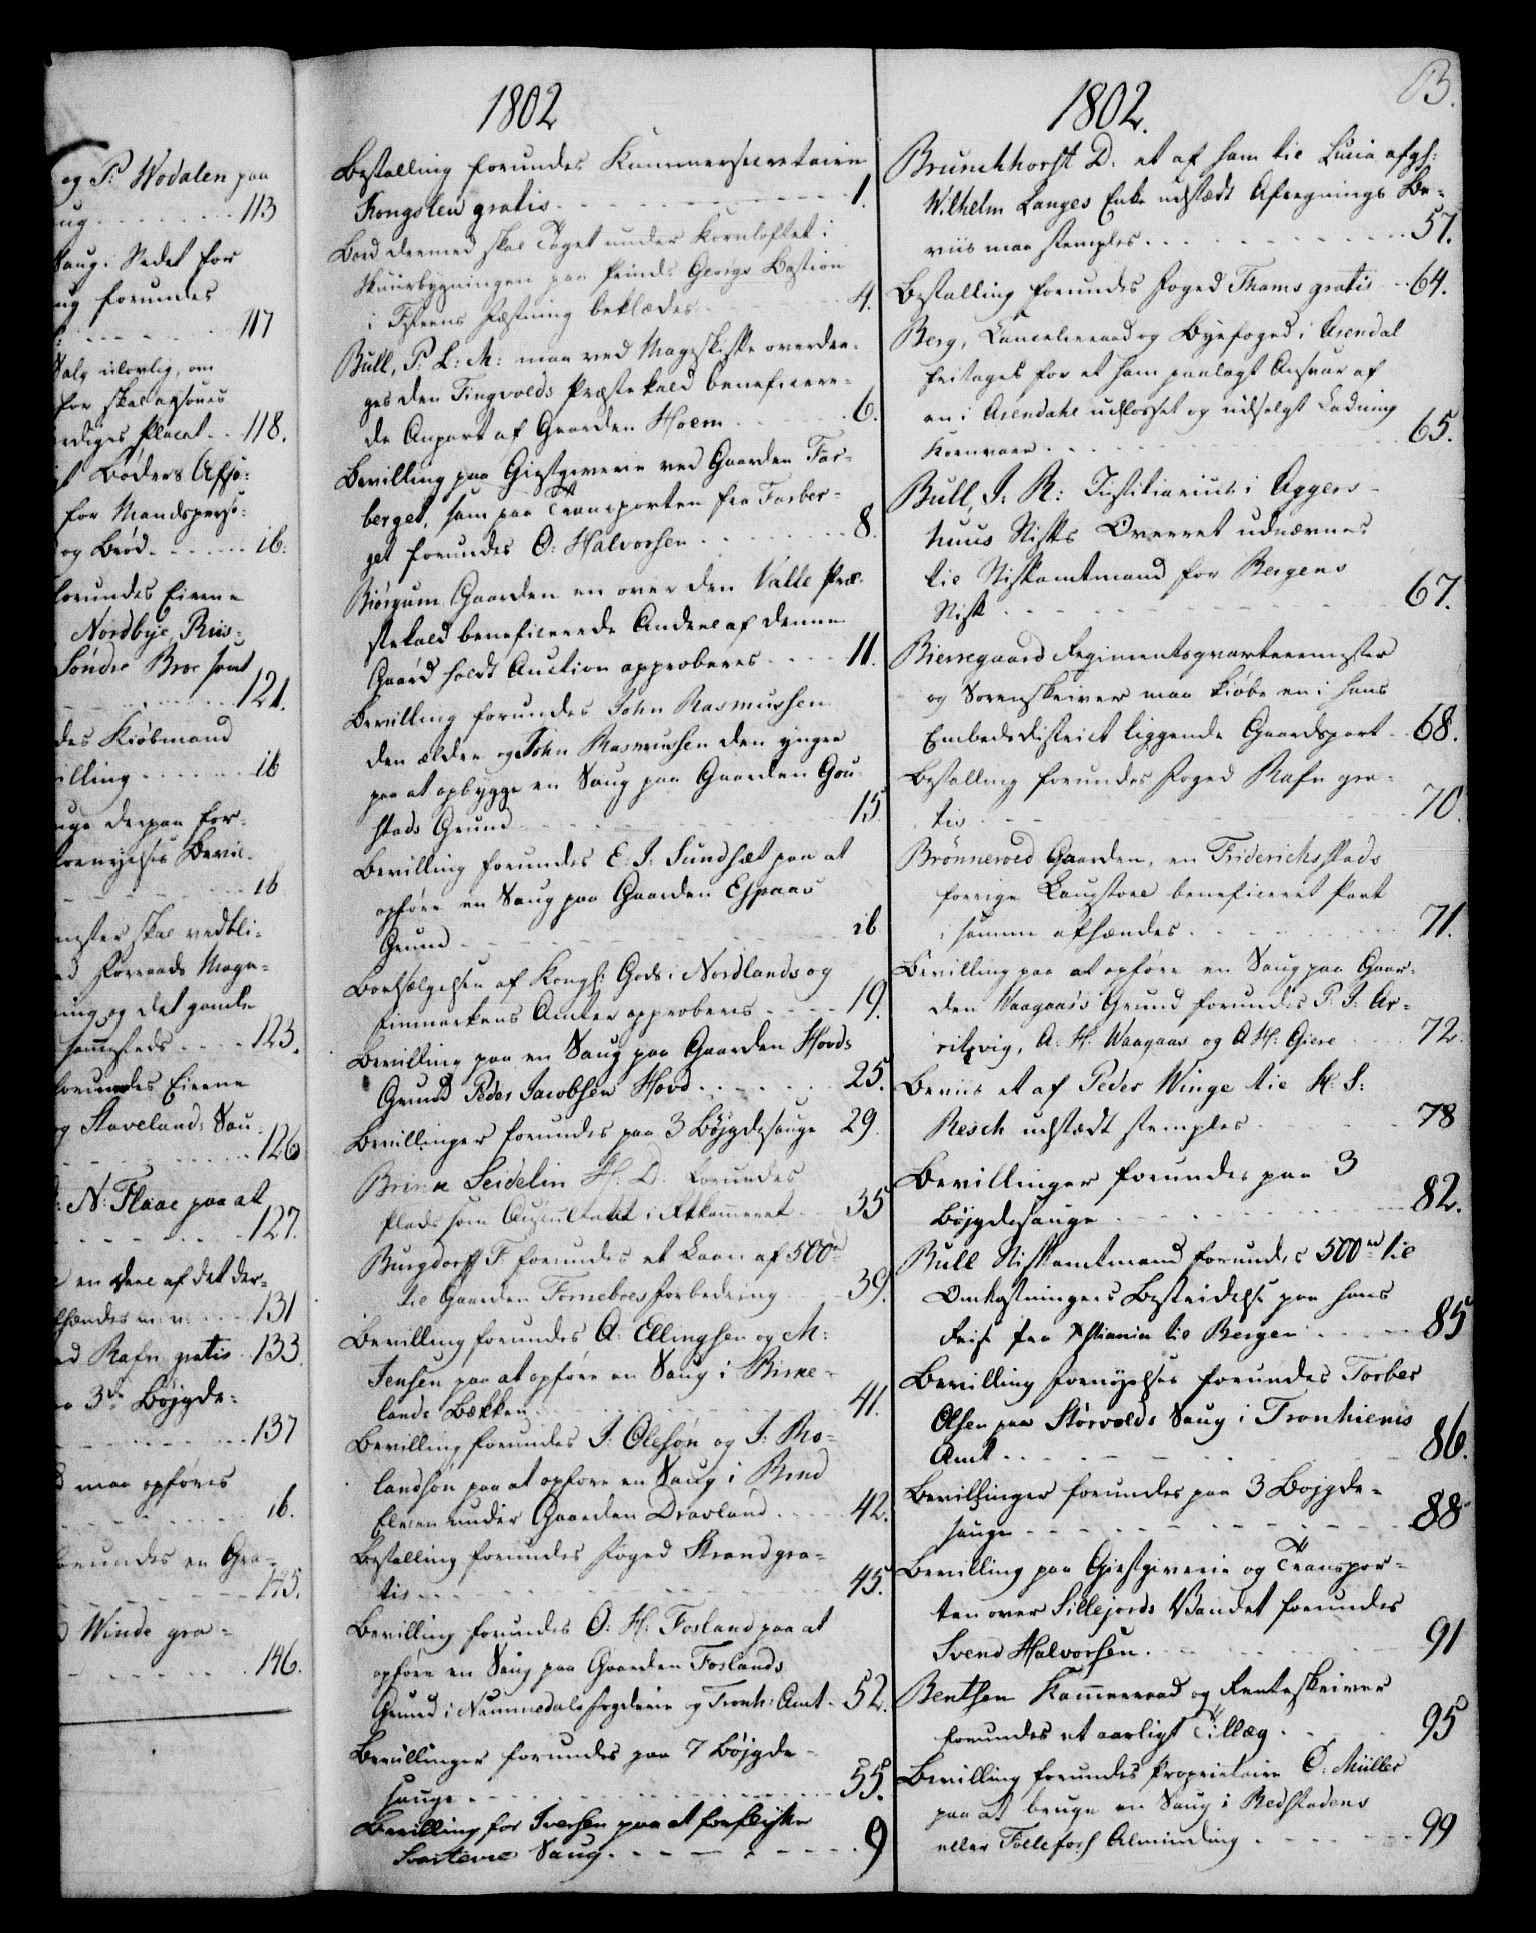 og P. Wodalen paa
ug 113
Saug i Stedet for
ug forundes
117
Salg ulovlig, om
for skal afsones
værdiges Placat 118.
Bøders Afso:
for Mandsperso:
og Brød ib.
forundes Eierne
Nordbye, Riis:
Søndre Broe samt
121.
des Kiøbmand
villing ib
uge derpaa for:
fornyelses Bevil
ib
mester skal vedbli:
ed Forraads Maga:
ning og det gamle
sammesteds 123.
forundes Eierne
og Staveland: Sau:
126
: N: Flaae paa at
127.
en Deel af det der:
hændes m. v. 131
ed Rafn gratis 133.
3de Bøjgde:
137
maa opføres
ib.
forundes en Gra:
145.
d Winde gra:
146.
1802
Bestalling forundes Kammersecretairen
Kongsten gratis 1.
Bord dermed skal Taget under Kornloftet i
Skuurbygningen paa Prinds Georgs Bastion
i Fstens Fæstning beklædes 4.
Bull, P: L: M: maa ved Mageskifte overdra:
ges den Tingvolds Præstekald beneficere:
de Anpart af Gaarden Hoem 6.
Bevilling paa Giestgiverie ved Gaarden Far:
berget, samt paa Transporten fra Farber:
get forundes O: Halvorsen 8.
Biørgum Gaarden en over den Valle Præ:
stekald beneficerede Andeel af denne
Gaard holdt Auction approberes 11.
Bevilling forundes John Rasmussen
den ældre og John Rasmussen den yngre
paa at opbygge en Saug paa Gaarden Gou:
stads Grund 15
Bevilling forundes E: J: Sundsæt paa at
opføre en Saug paa Gaarden Espaas
Grund ib
Bortsælgelsen af Kongl: Gods i Nordlands og
Finmarkens Amter approberes 19.
Bevilling paa en Saug paa Gaarden Hovds
Grund Peder Jacobsen Hovd 25.
Bevillinger forundes paa 3 Bøjgdesauge 29.
Brinck Seidelin H. D. forundes
Plads som Auscultant i Rtkammeret 35
Burgdorff F forundes et Laan af 500rd
til Gaarden Forneboes forbedring 39.
Bevilling forundes A: Ellingsen og M:
Jensen paa at opføre en Saug i Birke:
lands Bækken 41.
Bevilling forundes J: Olesøn og J: Ro:
landsøn paa at opføre en Saug i Brud
Elven under Gaarden Dravland 42.
Bestalling forundes Foged Strand gra:
tis 45.
Bevilling forundes O: H: Fosland paa at
opføre en Saug paa Gaarden Foslands
Grund i Nummedals Fogderie og Tronh: Amt 52.
Bevillinger forundes paa 7 Bøjgde:
sauge 55.
Bevilling for Iversen paa at forflytte
Svartevie Saug 9
B.
1802.
Brunchhorst D. et af ham til Liuia afgl:
Wilhelm Langes Enke udstædt Afregnings Be:
viis maa stemples 57.
Bestalling forundes Foged Thams gratis 64.
Berg, Cancelieraad og Byefoged i Arendal
fritages for et ham paalagt Ansvar af
en i Arendahl udlosset og udsolgt Ladning
Kornvarer 65.
Bull, J: R: Justitiarius i Aggers:
huus Stifts Overret udnævnes
til Stiftamtmand for Bergens
Stift 67.
Bierregaard Regimentsqvarteermester
og Sorenskriver maa kiøbe en i hans
Embedsdistrict liggende Gaardspart 68.
Bestalling forundes Foged Rafn gra:
tis 70.
Brønneroed Gaarden, en Friderichsstads
forrige Laugstoel beneficeret Part
i samme afhændes 71.
Bevilling paa at opføre en Saug paa Gaar:
den Waagaas's Grund forundes P: J: Ar:
ritzvig, A: H: Waagaas og A H: Giere 72.
Beviis et af Peder Winge til H: S:
Resch udstædt stemples 78
Bevillinger forundes paa 3
Bøjgdesauge 82.
Bull Stiftamtmand forundes 500rd til
Omkostningers Bestridelse paa hans
Reise fra Xstiania til Bergen 85
Bevilling fornyelses forundes Torber
Olsen paa Størvolds Saug i Tronhiems
Amt 86.
Bevillinger forundes paa 3 Bojgde:
sauge 88
Bevilling paa Giestgiverie og Transpor:
ten over Sillejords Vandet forundes
Svend Halvorsen 91
Benthen Kammerraad og Renteskriver
forundes et aarligt Tillæg 95
Bevilling forundes Proprietairen C: Müller
paa at bruge en Saug i Redstadens
eller Follefoss Alminding 99